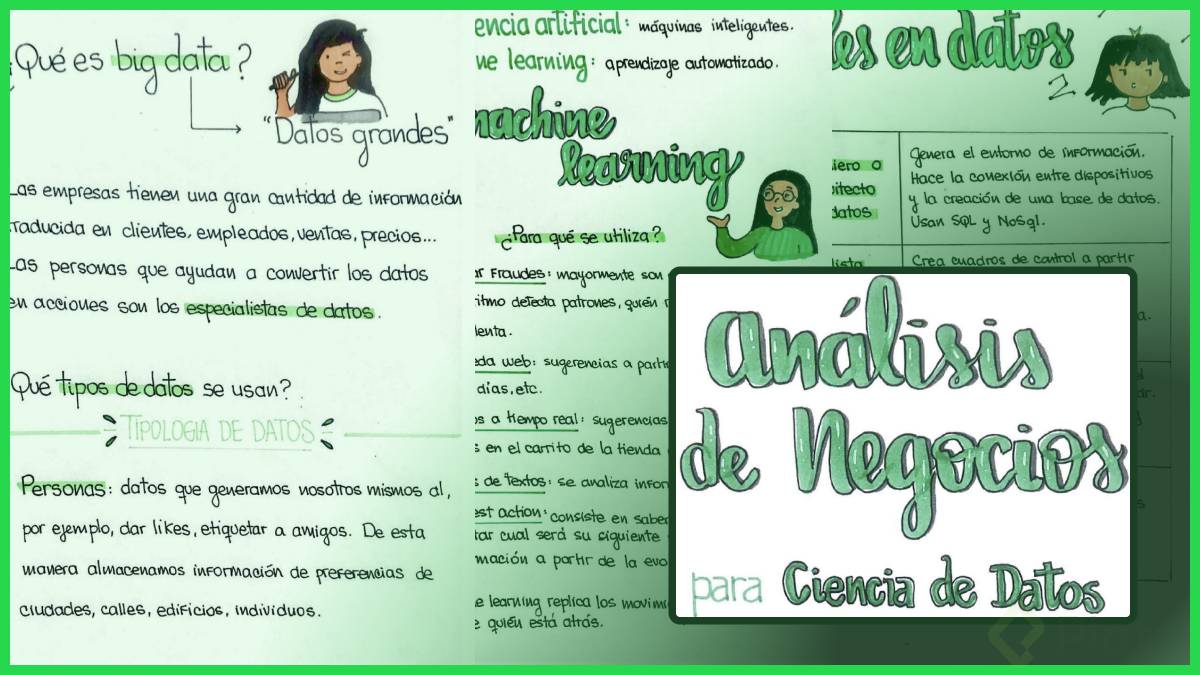 ¿Qué es big data?
"Datos grandes"
Las empresas tienen una gran cantidad de información
Traducida en clientes, empleados, ventas, precios...
Las personas que ayudan a convertir los datos
en acciones son los especialistas de datos.
Qué tipos de datos se usan?
TIPOLOGIA DE DATOS
Personas: datos que generamos nosotros mismos al,
por ejemplo, dar likes, etiquetar a amigos. De esta
manera almacenamos información de preferencias de
ciudades, calles, edificios, individuos.
encia artificial: máquinas inteligentes.
ne learning: aprendizaje automatizado.
machine
learning
¿Para qué se utiliza?
ar Fraudes: mayormente son
ritmo detecta patrones, quién
lenta.
eda web: sugerencias a parti
días, etc.
os a tiempo real: sugerencias
s en el carrito de la tienda
s de textos: se analiza infor
est action: consiste en saber
tar cual será su siguiente
mación a partir de la evo
e learning replica los movimi
e quién está atrás.
les en datos
2
iero o
itecto
datos
Genera el entorno de información.
Hace la conexión entre dispositivos
y la creación de una base de datos.
Usan SQL y NoSql.
lista
Crea cuadros de control a partir
a.
dr.
s
Análisis
de Negocios
para Ciencia de Datos